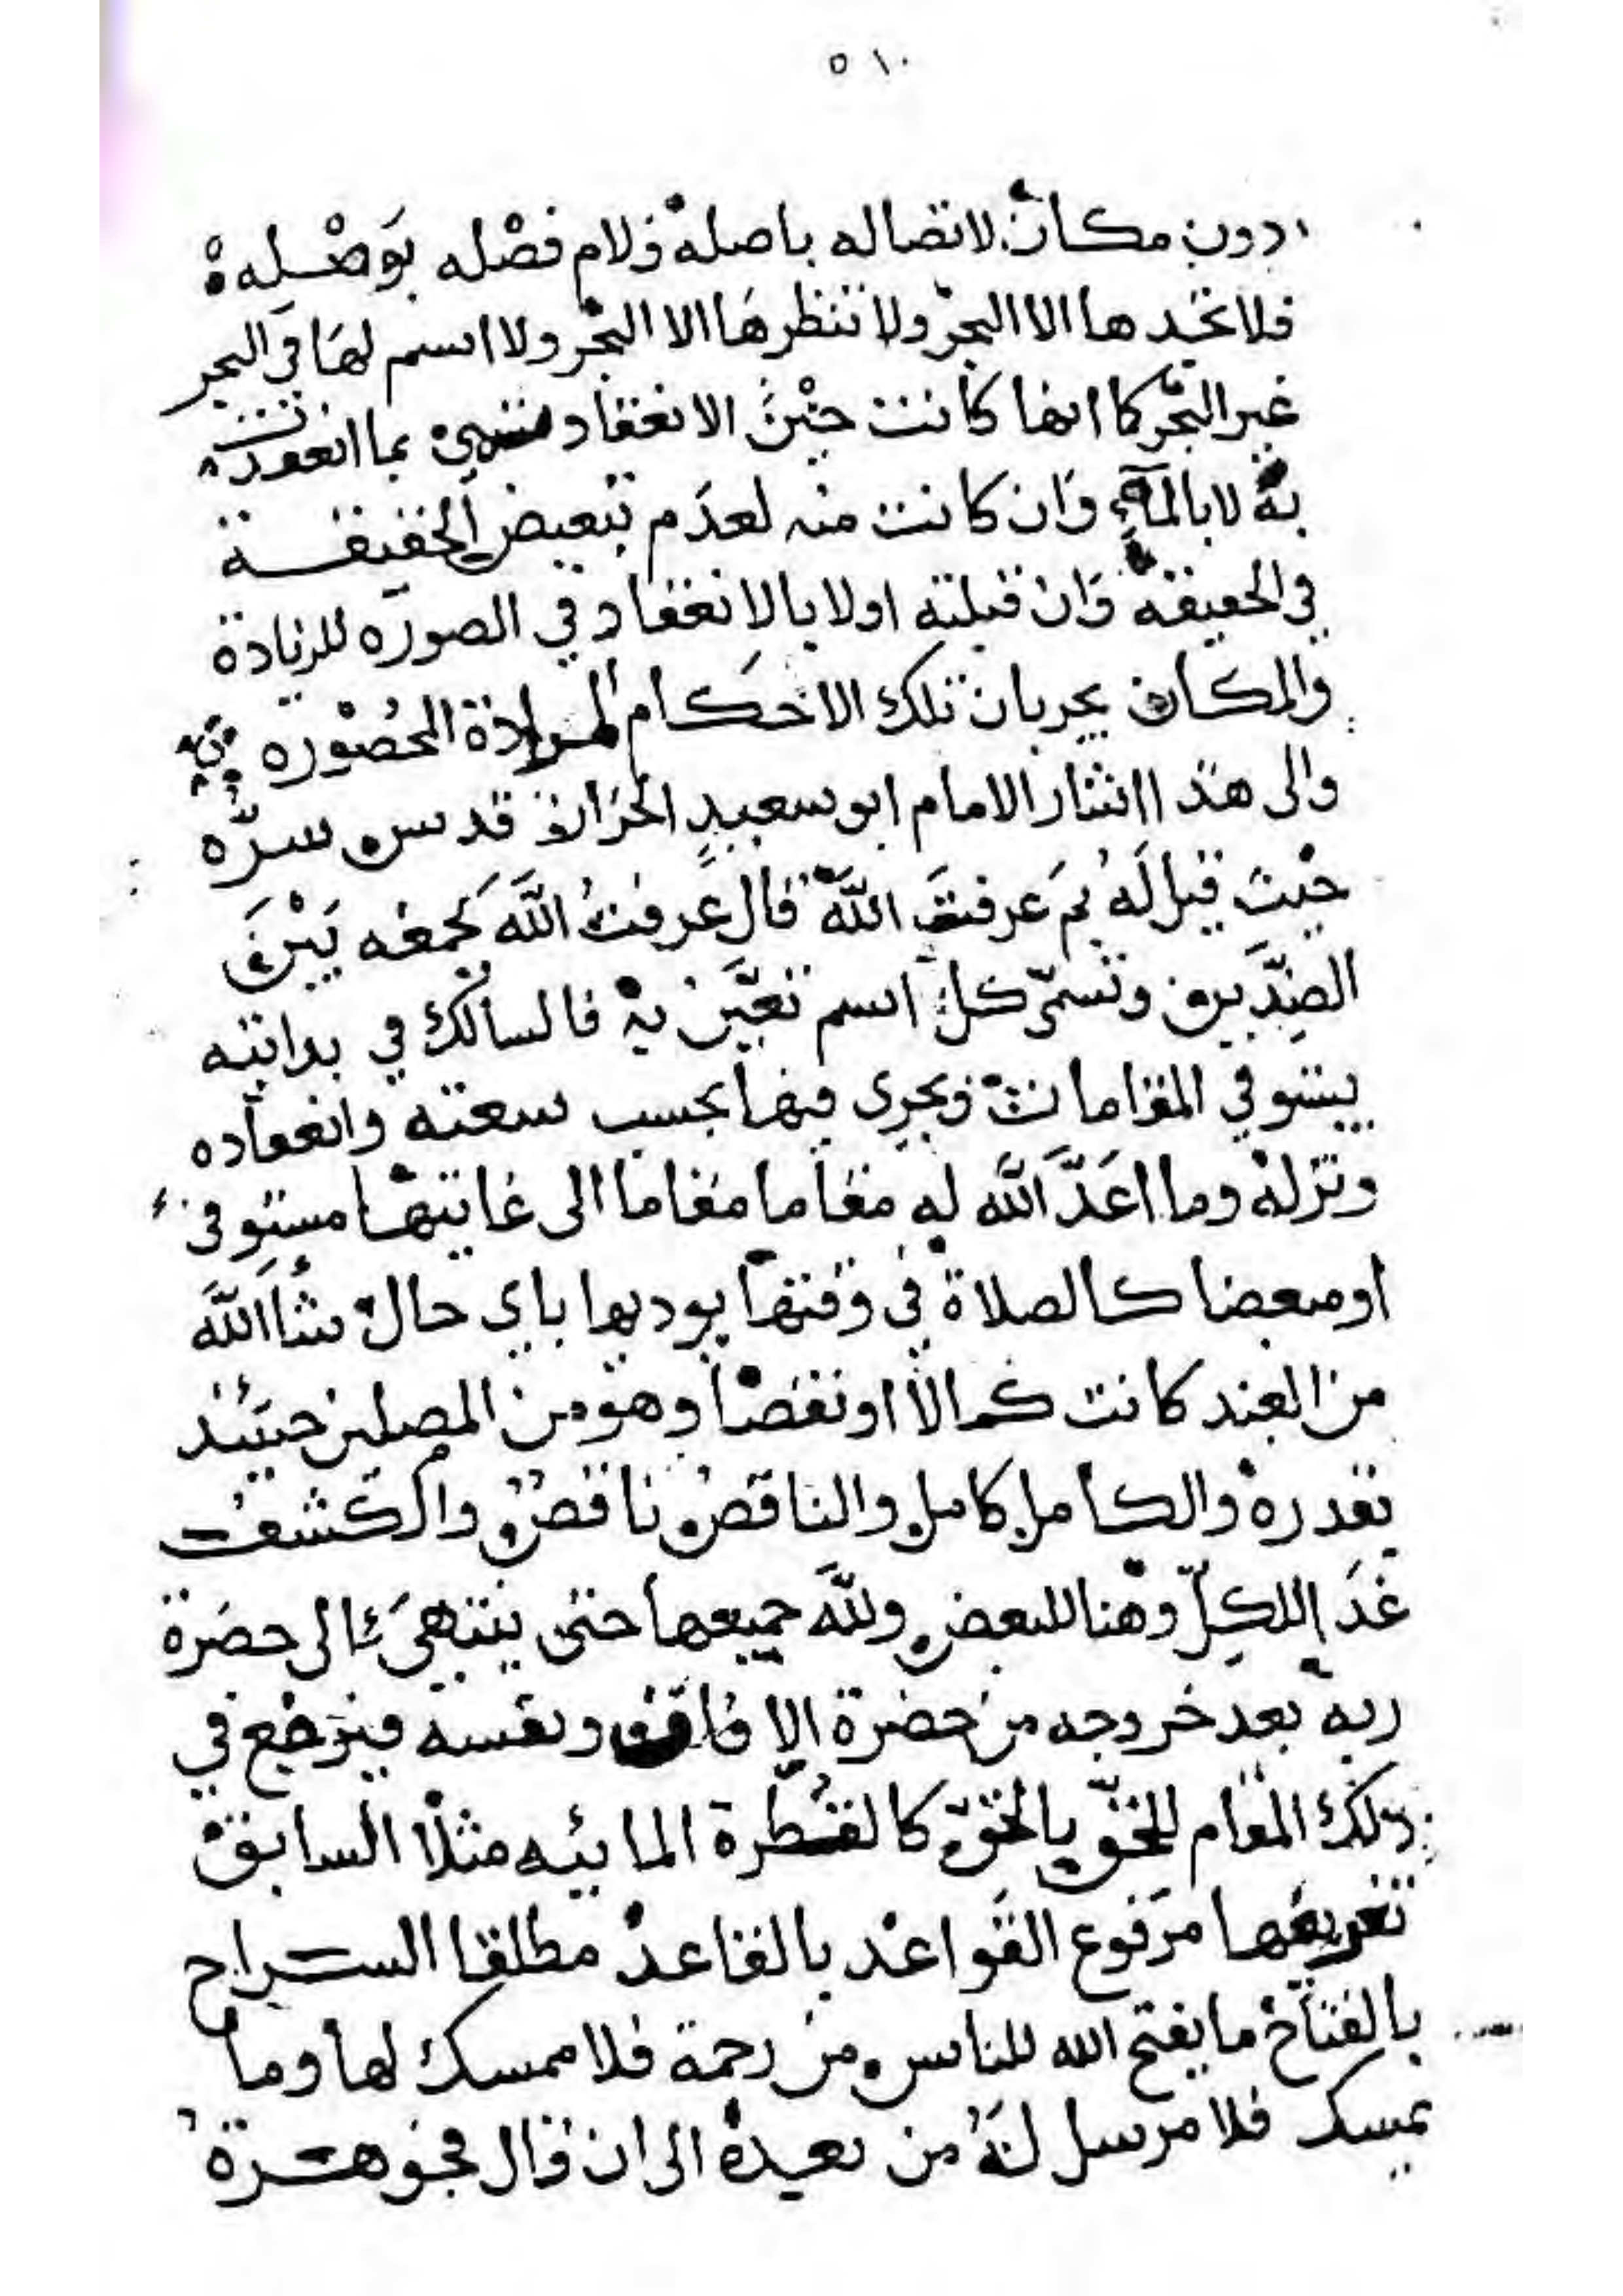 ٥١٠
دون مكان لاتصاله باصله ولام فصْله بوَصْله
فلا تجدها الا البحر ولا تنظرهَا الا البحْر ولا اسم لهَا في البحر
غير البحْر كما انها كانت حيْن الانعقاد تنتهي بما انعقدت
به لا بالمآءِ وَان كانت منه لعدَم تبعيض الحقيقة
في الحقيقه وَان قبلته اولا بالانعقاد في الصورَه للزيادة
والمكان بجريان تلك الاحكام المرادة المحصُوْره
والى هذا اشار الامام ابو سعيدٍ الخرّاز قدس سرّه
حيْث قيل لَهُ بمَ عرفتَ اللَّه قال عَرفتُ اللَّه بجمعه بَيْنَ
الضدَّين وتسمّى كلّ اسم تعَيَّن به فالسالك في بدايته
يستوفي المقامات ويجري فيها بحسب سعته وانعقاده
وتزله وما اعَدَّ اللَّه له مقاما مقاما الى غايتهَا مستوفى
او مبعضا كالصلاة في وقتها يوديها باي حال شاَ اللَّه
من العبد كانت كمالاً او نقصاً وهو من المصلين حينئذ
بقدره والكامل كامل والناقص ناقص والكشف
غدَا للكلّ وهنا للبعض وللَّه جميعها حتى ينتهيَ الى حضرة
ربه بعد خروجه من حضرة الافاق ونفسه فيرجع في
ذلك المقام للحقّ بالحقّ كالقطرة المائيه مثلًا السابق
تعريفها مرَفوع القوَاعد بالقاعد مطلقا السراح
بالفتاح ما يفتح الله للناس من رحمة فلا ممسك لها وما
يمسك فلا مرسل لهُ من بعده الى ان قال فجوهرة